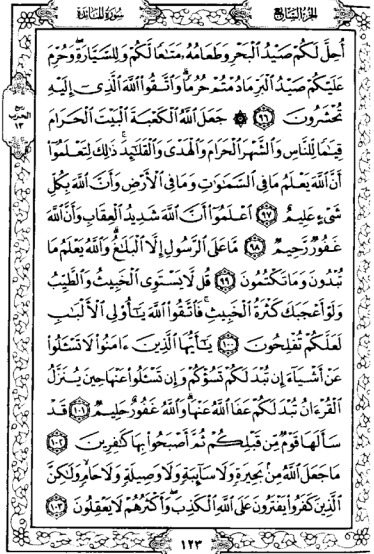 الجزء السابع
سورة المائدة
أُحِلَّ لَكُمْ صَيْدُ ٱلْبَحْرِ وَطَعَامُهُۥ مَتَٰعًا لَّكُمْ وَلِلسَّيَّارَةِ ۖ وَحُرِّمَ
عَلَيْكُمْ صَيْدُ ٱلْبَرِّ مَا دُمْتُمْ حُرُمًا ۗ وَٱتَّقُوا۟ ٱللَّهَ ٱلَّذِىٓ إِلَيْهِ
تُحْشَرُونَ ٩٦ ۞ جَعَلَ ٱللَّهُ ٱلْكَعْبَةَ ٱلْبَيْتَ ٱلْحَرَامَ
قِيَٰمًا لِّلنَّاسِ وَٱلشَّهْرَ ٱلْحَرَامَ وَٱلْهَدْىَ وَٱلْقَلَٰٓئِدَ ۚ ذَٰلِكَ لِتَعْلَمُوٓا۟
أَنَّ ٱللَّهَ يَعْلَمُ مَا فِى ٱلسَّمَٰوَٰتِ وَمَا فِى ٱلْأَرْضِ وَأَنَّ ٱللَّهَ بِكُلِّ
شَىْءٍ عَلِيمٌ ٩٧ ٱعْلَمُوٓا۟ أَنَّ ٱللَّهَ شَدِيدُ ٱلْعِقَابِ وَأَنَّ ٱللَّهَ
غَفُورٌ رَّحِيمٌ ٩٨ مَّا عَلَى ٱلرَّسُولِ إِلَّا ٱلْبَلَٰغُ ۗ وَٱللَّهُ يَعْلَمُ مَا
تُبْدُونَ وَمَا تَكْتُمُونَ ٩٩ قُل لَّا يَسْتَوِى ٱلْخَبِيثُ وَٱلطَّيِّبُ
وَلَوْ أَعْجَبَكَ كَثْرَةُ ٱلْخَبِيثِ ۚ فَٱتَّقُوا۟ ٱللَّهَ يَٰٓأُو۟لِى ٱلْأَلْبَٰبِ
لَعَلَّكُمْ تُفْلِحُونَ ١٠٠ يَٰٓأَيُّهَا ٱلَّذِينَ ءَامَنُوا۟ لَا تَسْـَٔلُوا۟
عَنْ أَشْيَآءَ إِن تُبْدَ لَكُمْ تَسُؤْكُمْ وَإِن تَسْـَٔلُوا۟ عَنْهَا حِينَ يُنَزَّلُ
ٱلْقُرْءَانُ تُبْدَ لَكُمْ عَفَا ٱللَّهُ عَنْهَا ۗ وَٱللَّهُ غَفُورٌ حَلِيمٌ ١٠١ قَدْ
سَأَلَهَا قَوْمٌ مِّن قَبْلِكُمْ ثُمَّ أَصْبَحُوا۟ بِهَا كَٰفِرِينَ ١٠٢
مَا جَعَلَ ٱللَّهُ مِنۢ بَحِيرَةٍ وَلَا سَآئِبَةٍ وَلَا وَصِيلَةٍ وَلَا حَامٍ ۙ وَلَٰكِنَّ
ٱلَّذِينَ كَفَرُوا۟ يَفْتَرُونَ عَلَى ٱللَّهِ ٱلْكَذِبَ ۖ وَأَكْثَرُهُمْ لَا يَعْقِلُونَ ١٠٣
ربع
الحزب
١٣
١٢٣